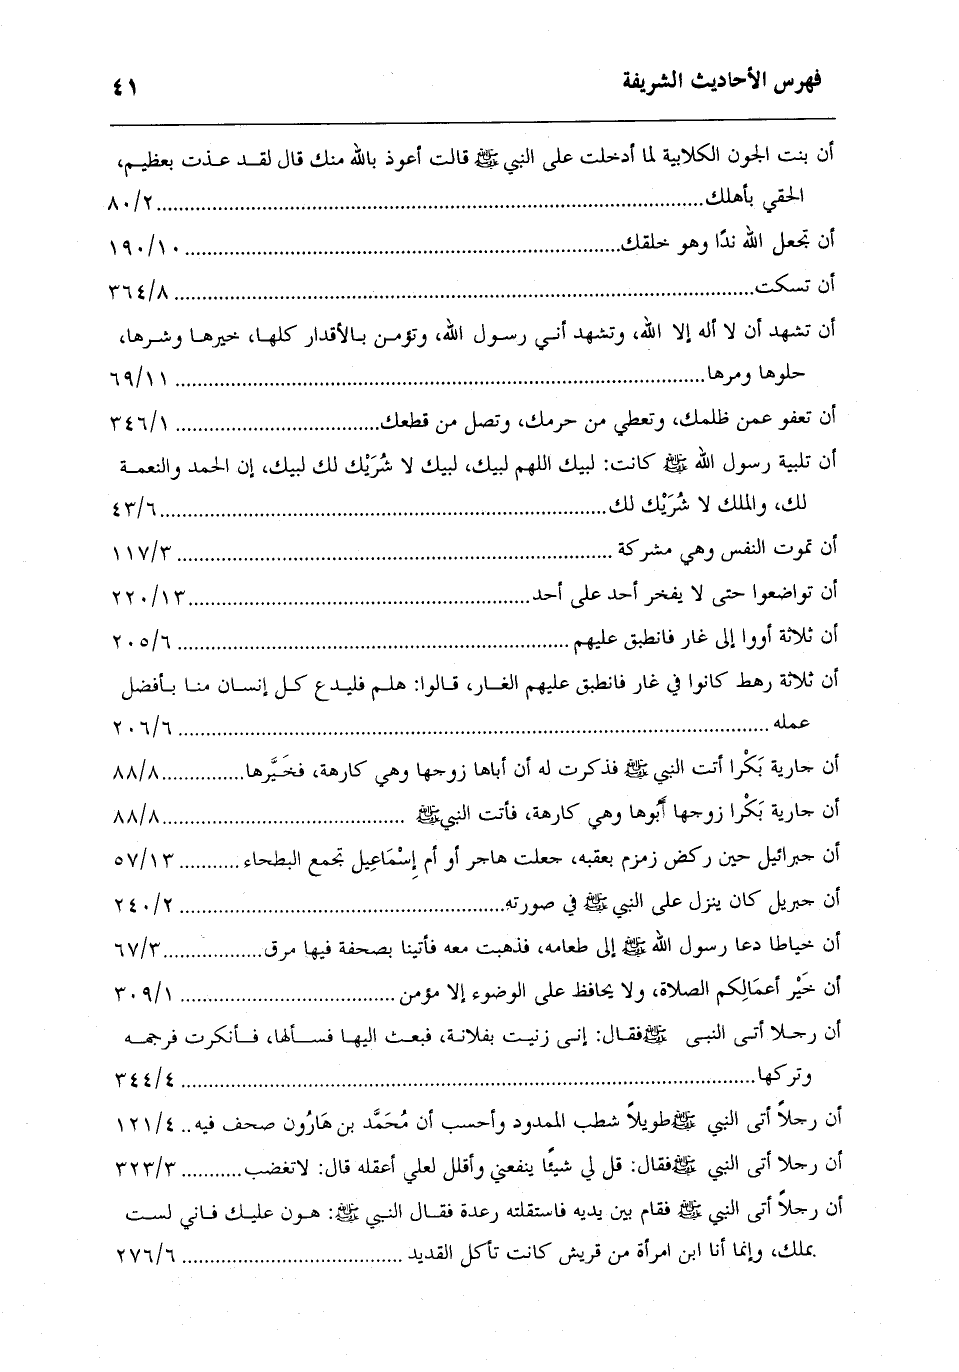 فهرس الأحاديث الشريفة ٤١
أن بنت الجون الكلابية لما أدخلت على النبي ﷺ قالت أعوذ بالله منك قال لقد عذت بعظيم،
الحقي بأهلك ٨٠/٢
أن تجعل الله ندًا وهو خلقك ١٩٠/١٠
أن تسكت ٣٦٤/٨
أن تشهد أن لا أله إلا الله، وتشهد أني رسول الله، وتؤمن بالأقدار كلها، خيرها وشرها،
حلوها ومرها ٦٩/١١
أن تعفو عمن ظلمك، وتعطي من حرمك، وتصل من قطعك ٣٤٦/١
أن تلبية رسول الله ﷺ كانت: لبيك اللهم لبيك، لبيك لا شُرَيْك لك لبيك، إن الحمد والنعمة
لك، والملك لا شُرَيْك لك ٤٣/٦
أن تموت النفس وهي مشركة ١١٧/٣
أن تواضعوا حتى لا يفخر أحد على أحد ٢٢٠/١٣
أن ثلاثة أووا إلى غار فانطبق عليهم ٢٠٥/٦
أن ثلاثة رهط كانوا في غار فانطبق عليهم الغار، قالوا: هلم فليدع كل إنسان منا بأفضل
عمله ٢٠٦/٦
أن جارية بَكْرا أتت النبي ﷺ فذكرت له أن أباها زوجها وهي كارهة، فخَيَّرها ٨٨/٨
أن جارية بَكْرا زوجها أَبُوها وهي كارهة، فأتت النبي ﷺ ٨٨/٨
أن جبرائيل حين ركض زمزم بعقبه، جعلت هاجر أو أم إِسْمَاعِيل تجمع البطحاء ٥٧/١٣
أن جبريل كان ينزل على النبي ﷺ في صورته ٢٤٠/٢
أن خياطا دعا رسول الله ﷺ إلى طعامه، فذهبت معه فأتينا بصحفة فيها مرق ٦٧/٣
أن خَيْر أعمَالِكم الصلاة، ولا يحافظ على الوضوء إلا مؤمن ٣٠٩/١
أن رجلا أتى النبي ﷺ فقال: إني زنيت بفلانة، فبعث اليها فسألها، فأنكرت فرجمه
وتركها ٣٤٤/٤
أن رجلاً أتى النبي ﷺ طويلاً شطب الممدود وأحسب أن مُحَمَّد بن هَارُون صحف فيه ١٢١/٤
أن رجلا أتى النبي ﷺ فقال: قل لي شيئًا ينفعني وأقلل لعلي أعقله قال: لاتغضب ٣٢٣/٣
أن رجلاً أتى النبي ﷺ فقام بين يديه فاستقلته رعدة فقال النبي ﷺ: هون عليك فاني لست
بملك، وإنما أنا ابن امرأة من قريش كانت تأكل القديد ٢٧٦/٦